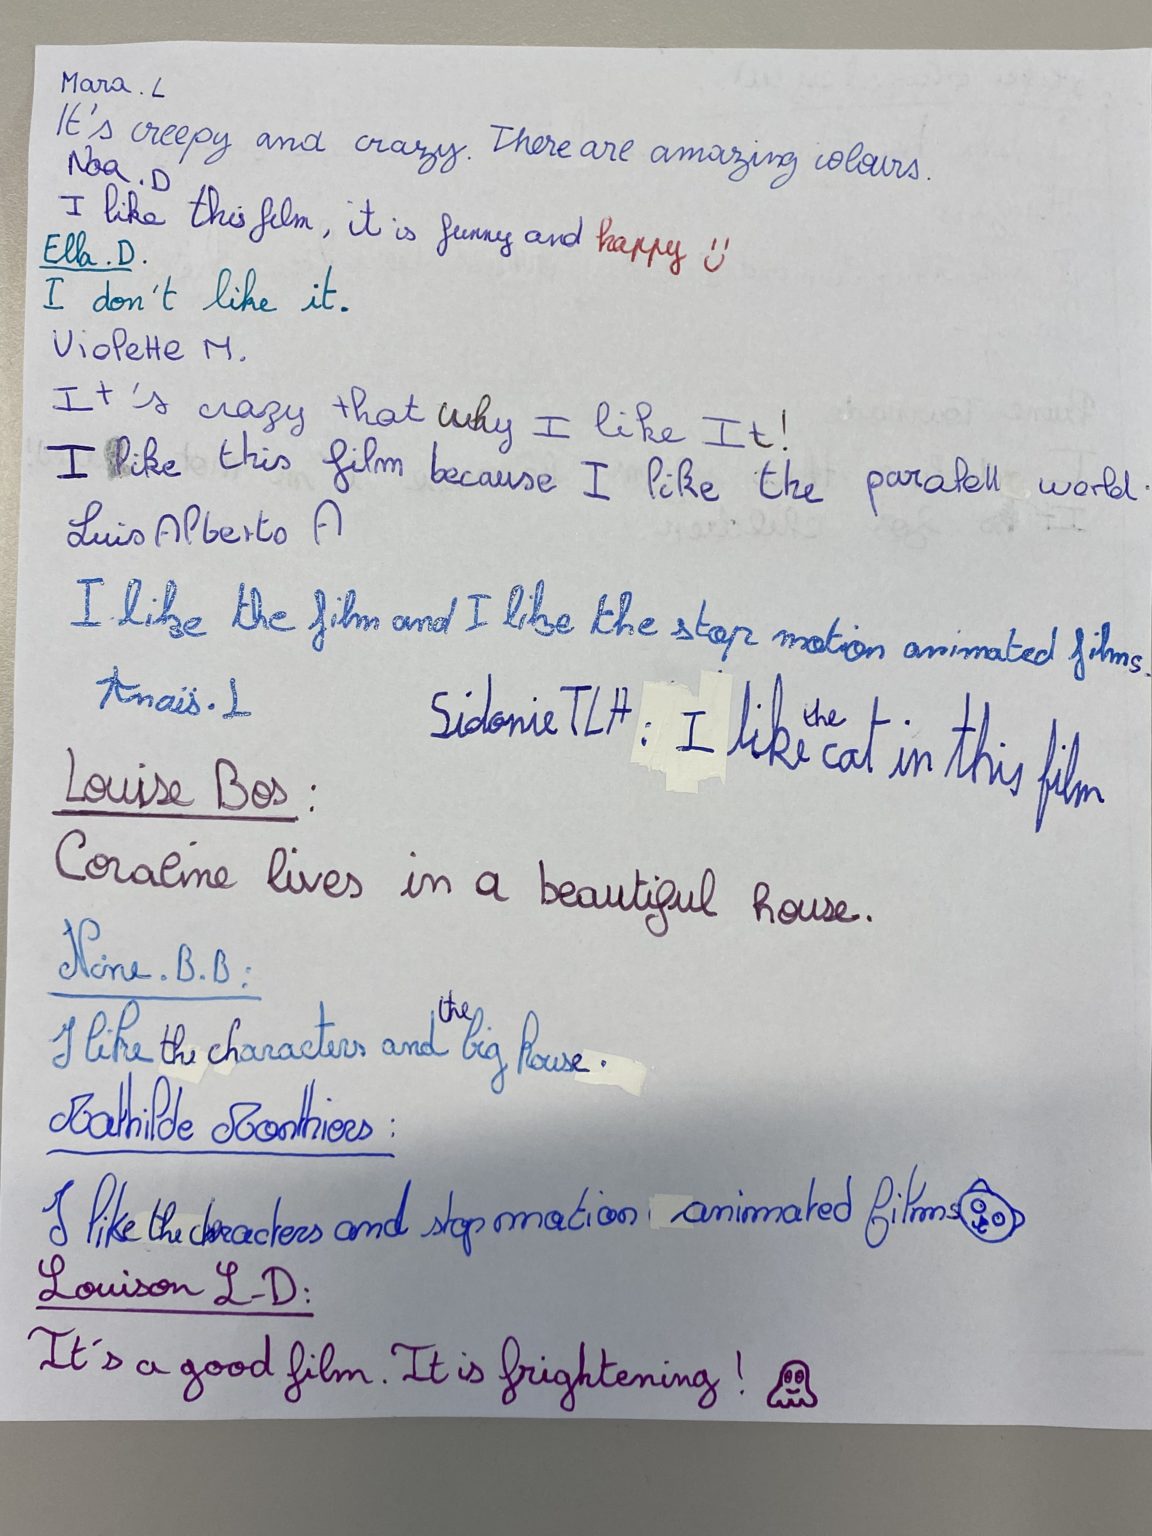 Mara. L
It's creepy and crazy. There are amazing colours.
Noa. D
I like this film, it is funny and happy
Ella. D.
I don't like it.
Violette M.
It's crazy that why I like It!
I like this film because I like the paralell world.
Luis Alberto A
I like the film and I like the stop motion animated films.
Anaïs. L
Sidonie TLH: I like the cat in this film
Louise Bos:
Coraline lives in a beautiful house.
None. B.B:
I like the characters and the big house.
Mathilde Monthiers:
I like the characters and stop motion animated films
Louison L-D:
It's a good film. It is frightening!